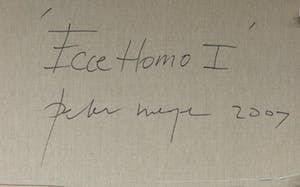 'Ecce Homo I'
Peter Meyer 2007